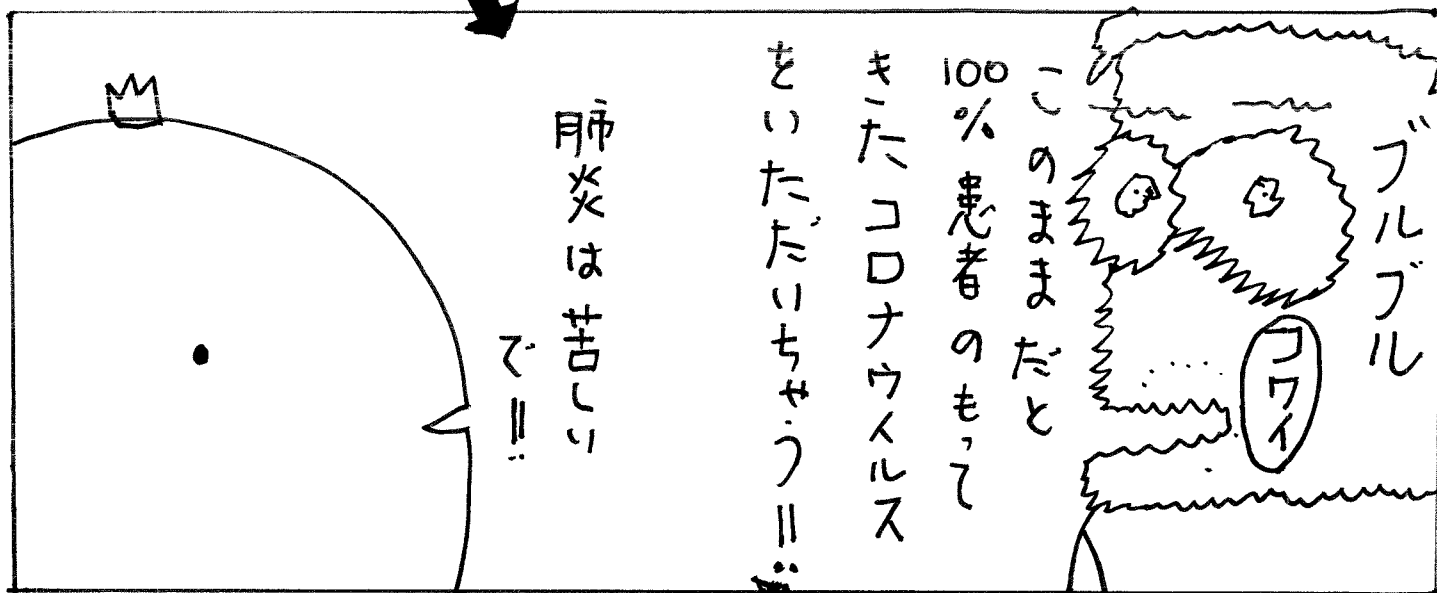 ブルブル
コワイ
このままだと
100%患者のもって
きたコロナウィルス
をいただいちゃう!!
肺炎は苦しい
で!!